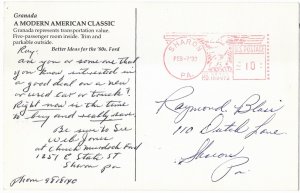 Granada
A MODERN AMERICAN CLASSIC
Granada represents transportation value.
Five-passenger room inside. Trim and
parkable outside.
Better Ideas for the '80s. Ford
Ray:
are you or some one that
you know interested in
a good deal on a new
or used car or truck?
Right now is the time
to buy and really save.
Be sure to See
Wib Jones
at Chuck Murdoch Ford
1251 E State St
Sharon Pa
phone 9818140
SHARON
FEB-7'82
PA.
U.S. POSTAGE
10
Raymond Blair
110 Dutch Lane
Sharon,
Pa